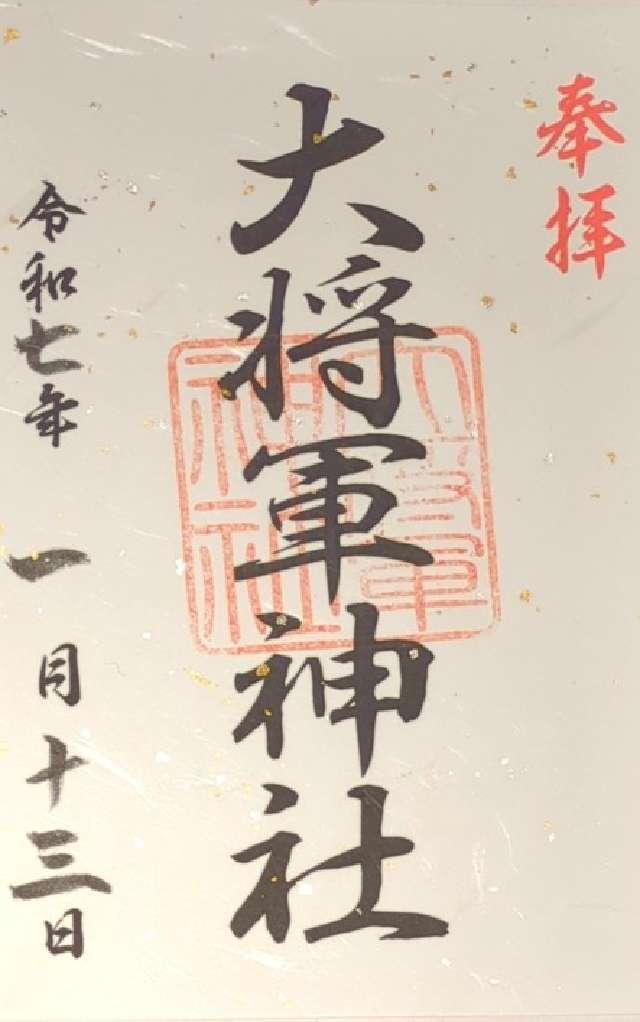 奉拝
大将軍神社
大将軍
神社
令和七年 一月十三日